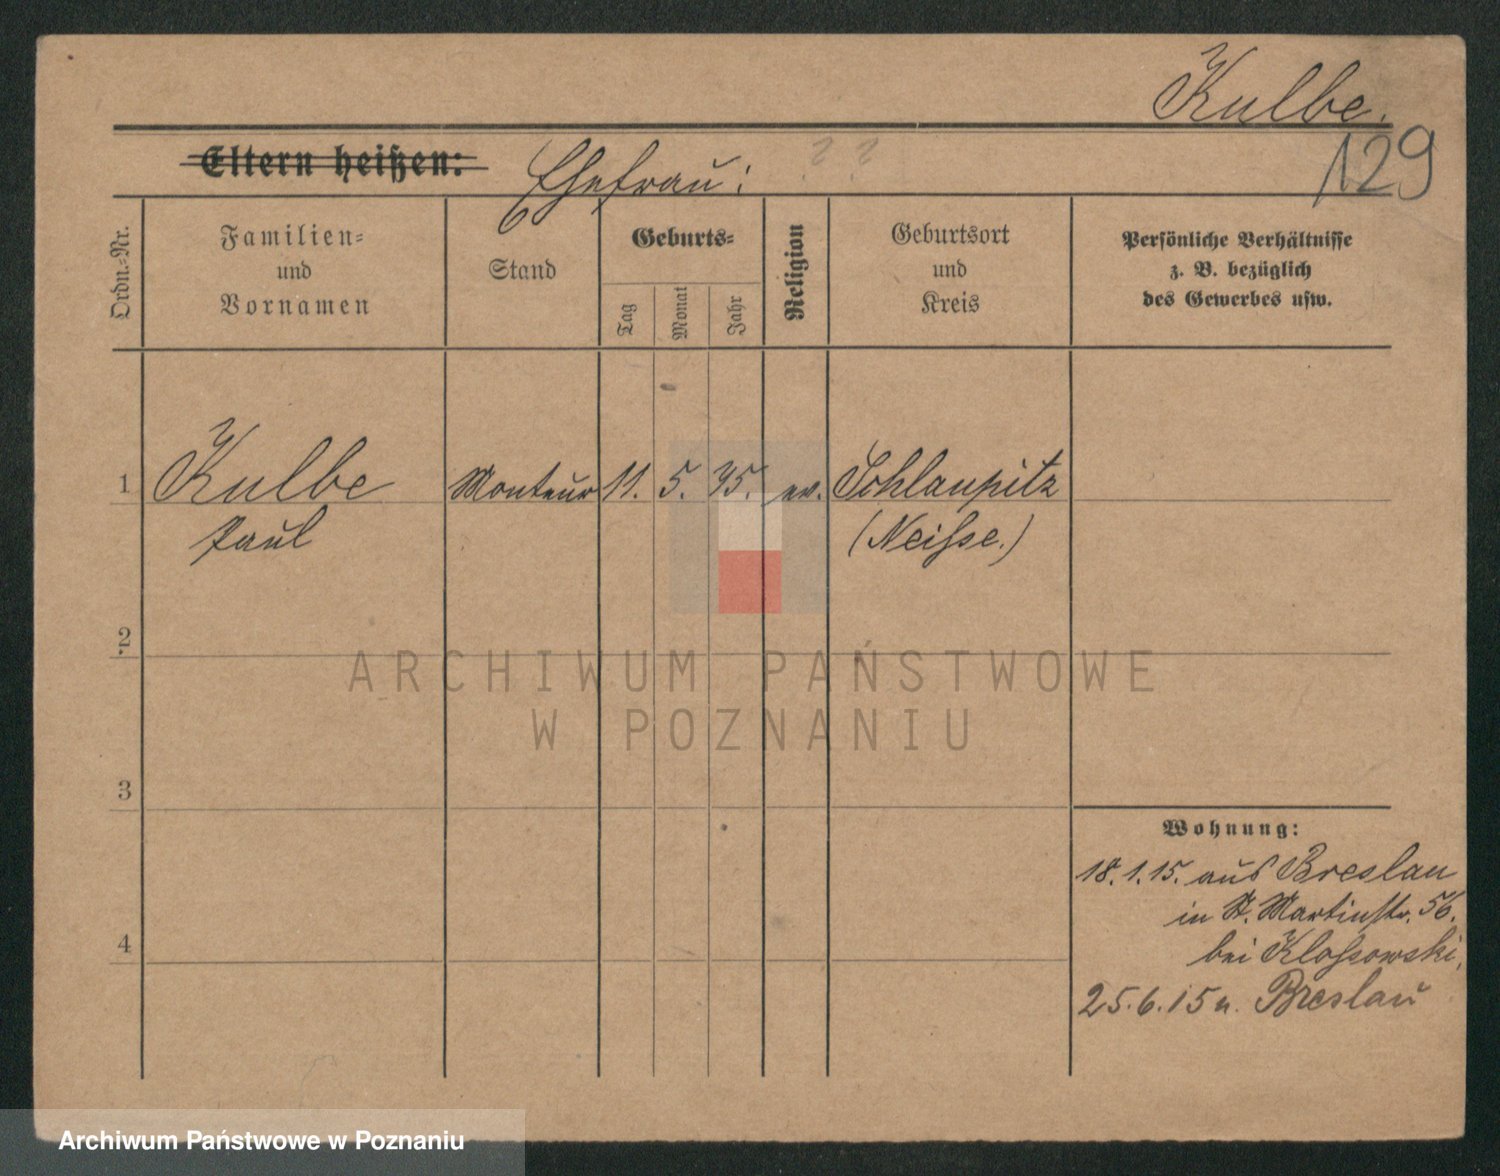 Kulbe.
129
Eltern heißen: Ehefrau: ? ?
Ordn.-Nr.
Familien-
und
Vornamen
Stand
Geburts-
Tag
Monat
Jahr
Religion
Geburtsort
und
Kreis
Persönliche Verhältnisse
z. B. bezüglich
des Gewerbes usw.
1 Kulbe Monteur 11. 5. 95. ev. Schlaupitz
Paul (Neisse.)
2
3
4
Wohnung:
18.1.15. aus Breslau
in St. Martinstr. 56.
bei Klossowski,
25.6.15 n. Breslau
ARCHIWUM PAŃSTWOWE
W POZNANIU
Archiwum Państwowe w Poznaniu